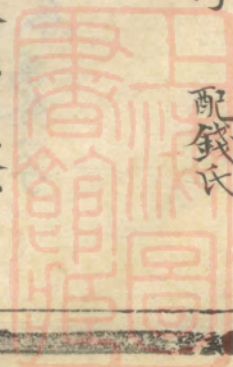 配錢氏
上海圖
書館藏